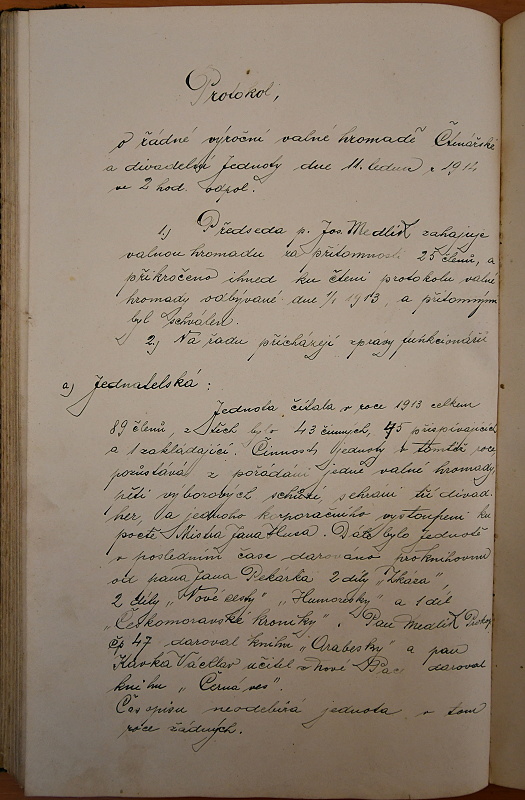 Protokol,
o řádné výroční valné hromadě Čtenářské
a divadelní Jednoty dne 11. ledna r. 1914
ve 2 hod. odpol.
1.) Předseda p. Jos. Medlík zahajuje
valnou hromadu za přítomnosti 25 členů, a
přikročeno ihned ku čtení protokolu valné
hromady odbývané dne 1/1 1913, a přítomnými
byl schválen.
2.) Na řadu přicházejí zprávy funkcionářů
a) Jednatelská:
Jednota čítala v roce 1913 celkem
89 členů, z těch bylo 43 činných, 45 přispívajících
a 1 zakládající. Činnost jednoty v tomtéž roce
pozůstává z pořádání jedné valné hromady,
pěti výborových schůzí, sehrání tří divad.
her, a jednoho korporačního vystoupení ku
poctě Mistra Jana Husa. Dále bylo jednotě
v posledním čase darováno pro knihovnu
od pana Jana Pekárka 2 díly "Zkáza",
2 díly "Nové cesty" "Humoresky" a 1 díl
"Českomoravské kroniky". Pan Medlík Prokop
čp 47 daroval knihu "Arabesky" a pan
Kavka Václav učitel z Nové Paky daroval
knihu "Černá ves".
Časopisu neodebírá jednota v tom
roce žádných.